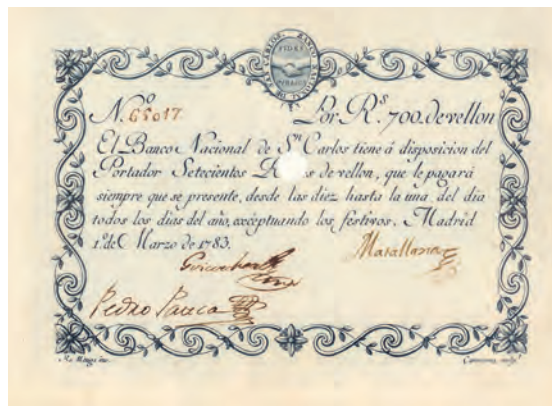 BANCO NACIONAL DE SAN CARLOS
FIDES
PUBLICA
N.º 65017 Por R.s 700. de vellon
El Banco Nacional de S.n Carlos tiene á disposicion del
Portador Setecientos R s de vellon, que le pagará
siempre que se presente, desde las diez hasta la una del dia
todos los dias del año, exceptuando los festivos. Madrid
1.º de Marzo de 1783.
Pedro